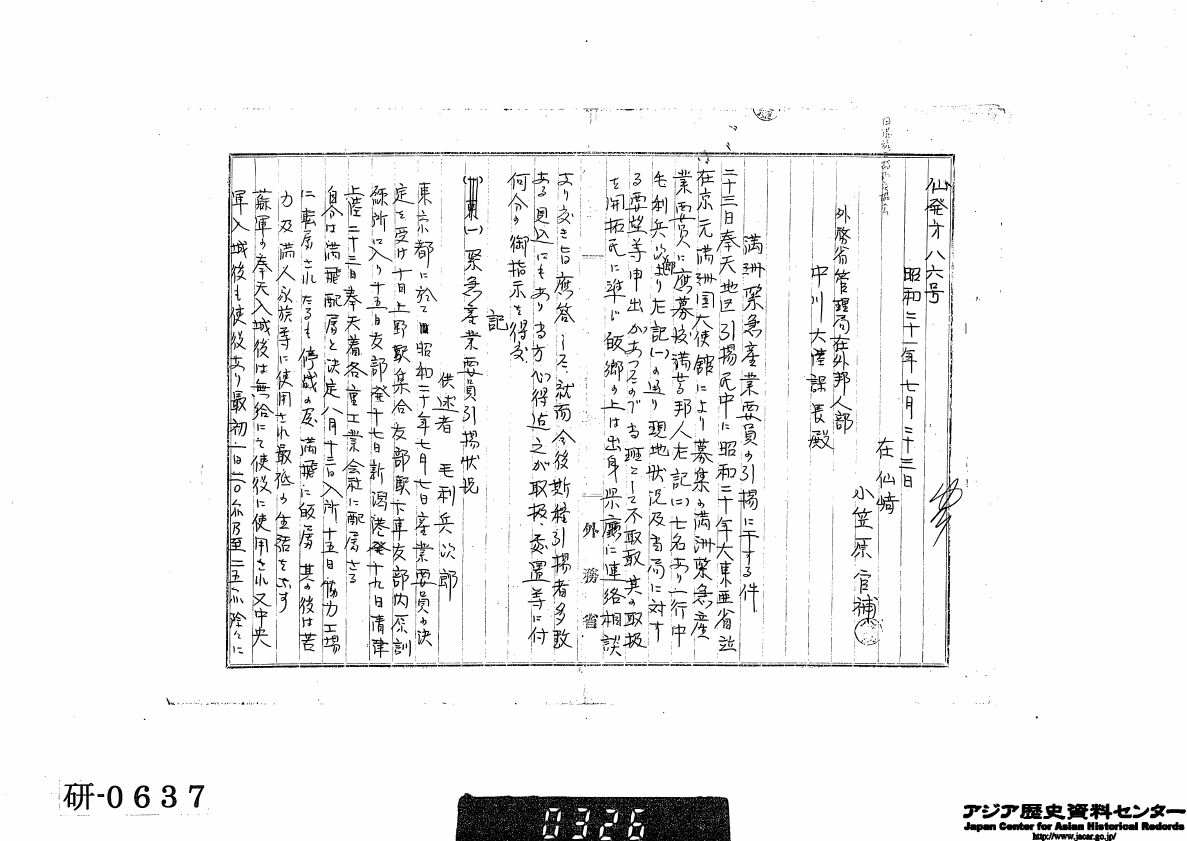 仙発才八六号
昭和二十一年七月二十三日
在仙崎
小笠原官補
外務省管理局在外邦人部
中川大陸課長殿
満洲緊急産業要員の引揚に干する件
二十三日奉天地区引揚民中に昭和二十年大東亜省並
在京元満洲国大使館により募集の満洲緊急産
業要員に應募渡満せる邦人左記に七名あり一行中
毛利兵次郎より左記(一)の通り現地状況及当局に対す
る要望等申出があつたので当班として不取敢其の取扱
を開拓民に準じ帰郷の上は出身県廳に連絡相談
あり度き旨應答した就而今後斯種引揚者多数
ある見込にもあり当方心得迄之が取扱、処置等に付
何分の御指示を得度
記
(一)緊急産業要員引揚状況
供述者 毛利兵次郎
東京都に於て昭和二十年七月七日産業要員の決
定を受け十日上野駅集合友部駅下車友部内原訓
練所に入り十五日友部発十七日新潟港発十九日清津
上陸二十三日奉天着各重工業会社に配属さる
自分は満飛配属と決定八月十二日入所十五日協力工場
に転属されたるも停戦の為満飛に帰属其の後は苦
力及満人家族等に使用され最低の生活をなす
蘇軍の奉天入城後は無給にて使役に使用され又中央
軍入城後も使役あり最初一日二〇元乃至二五元除々に
外務省
研-0637
0326
アジア歴史資料センター
Japan Center for Asian Historical Records
http://www.jacar.go.jp/